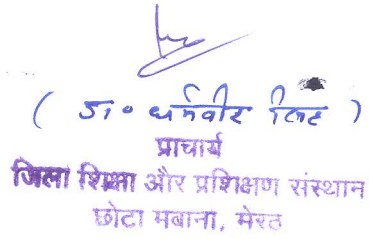 ( डा॰ धर्मवीर सिंह )
प्राचार्य
जिला शिक्षा और प्रशिक्षण संस्थान
छोटा मवाना, मेरठ